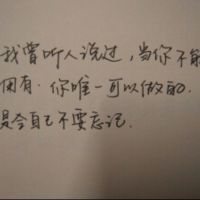 我曾听人说过,当你不能
拥有·你唯一可以做的·
是令自己不要忘记.